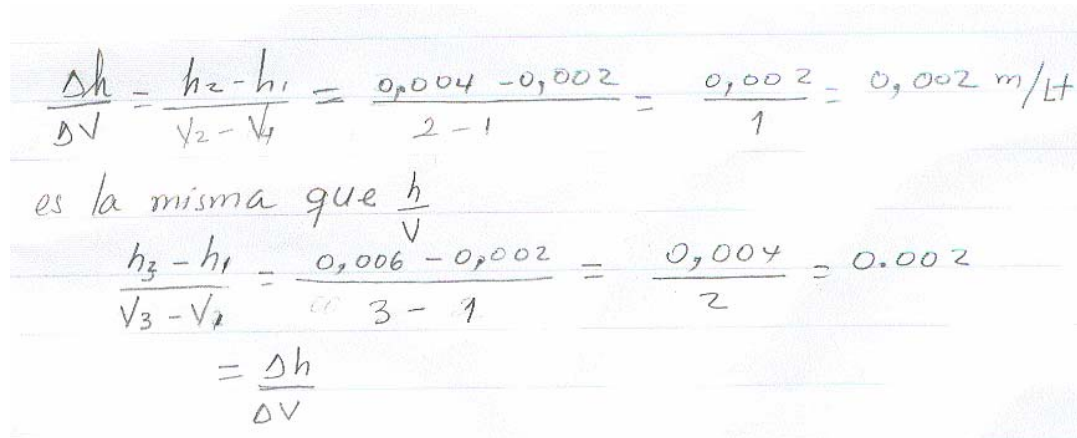 Δh/ΔV = h₂-h₁/V₂-V₁ = 0,004 -0,002/2-1 = 0,002/1 = 0,002 m/Lt
es la misma que h/V
h₃-h₁/V₃-V₁ = 0,006 -0,002/3-1 = 0,004/2 = 0.002
= Δh/ΔV